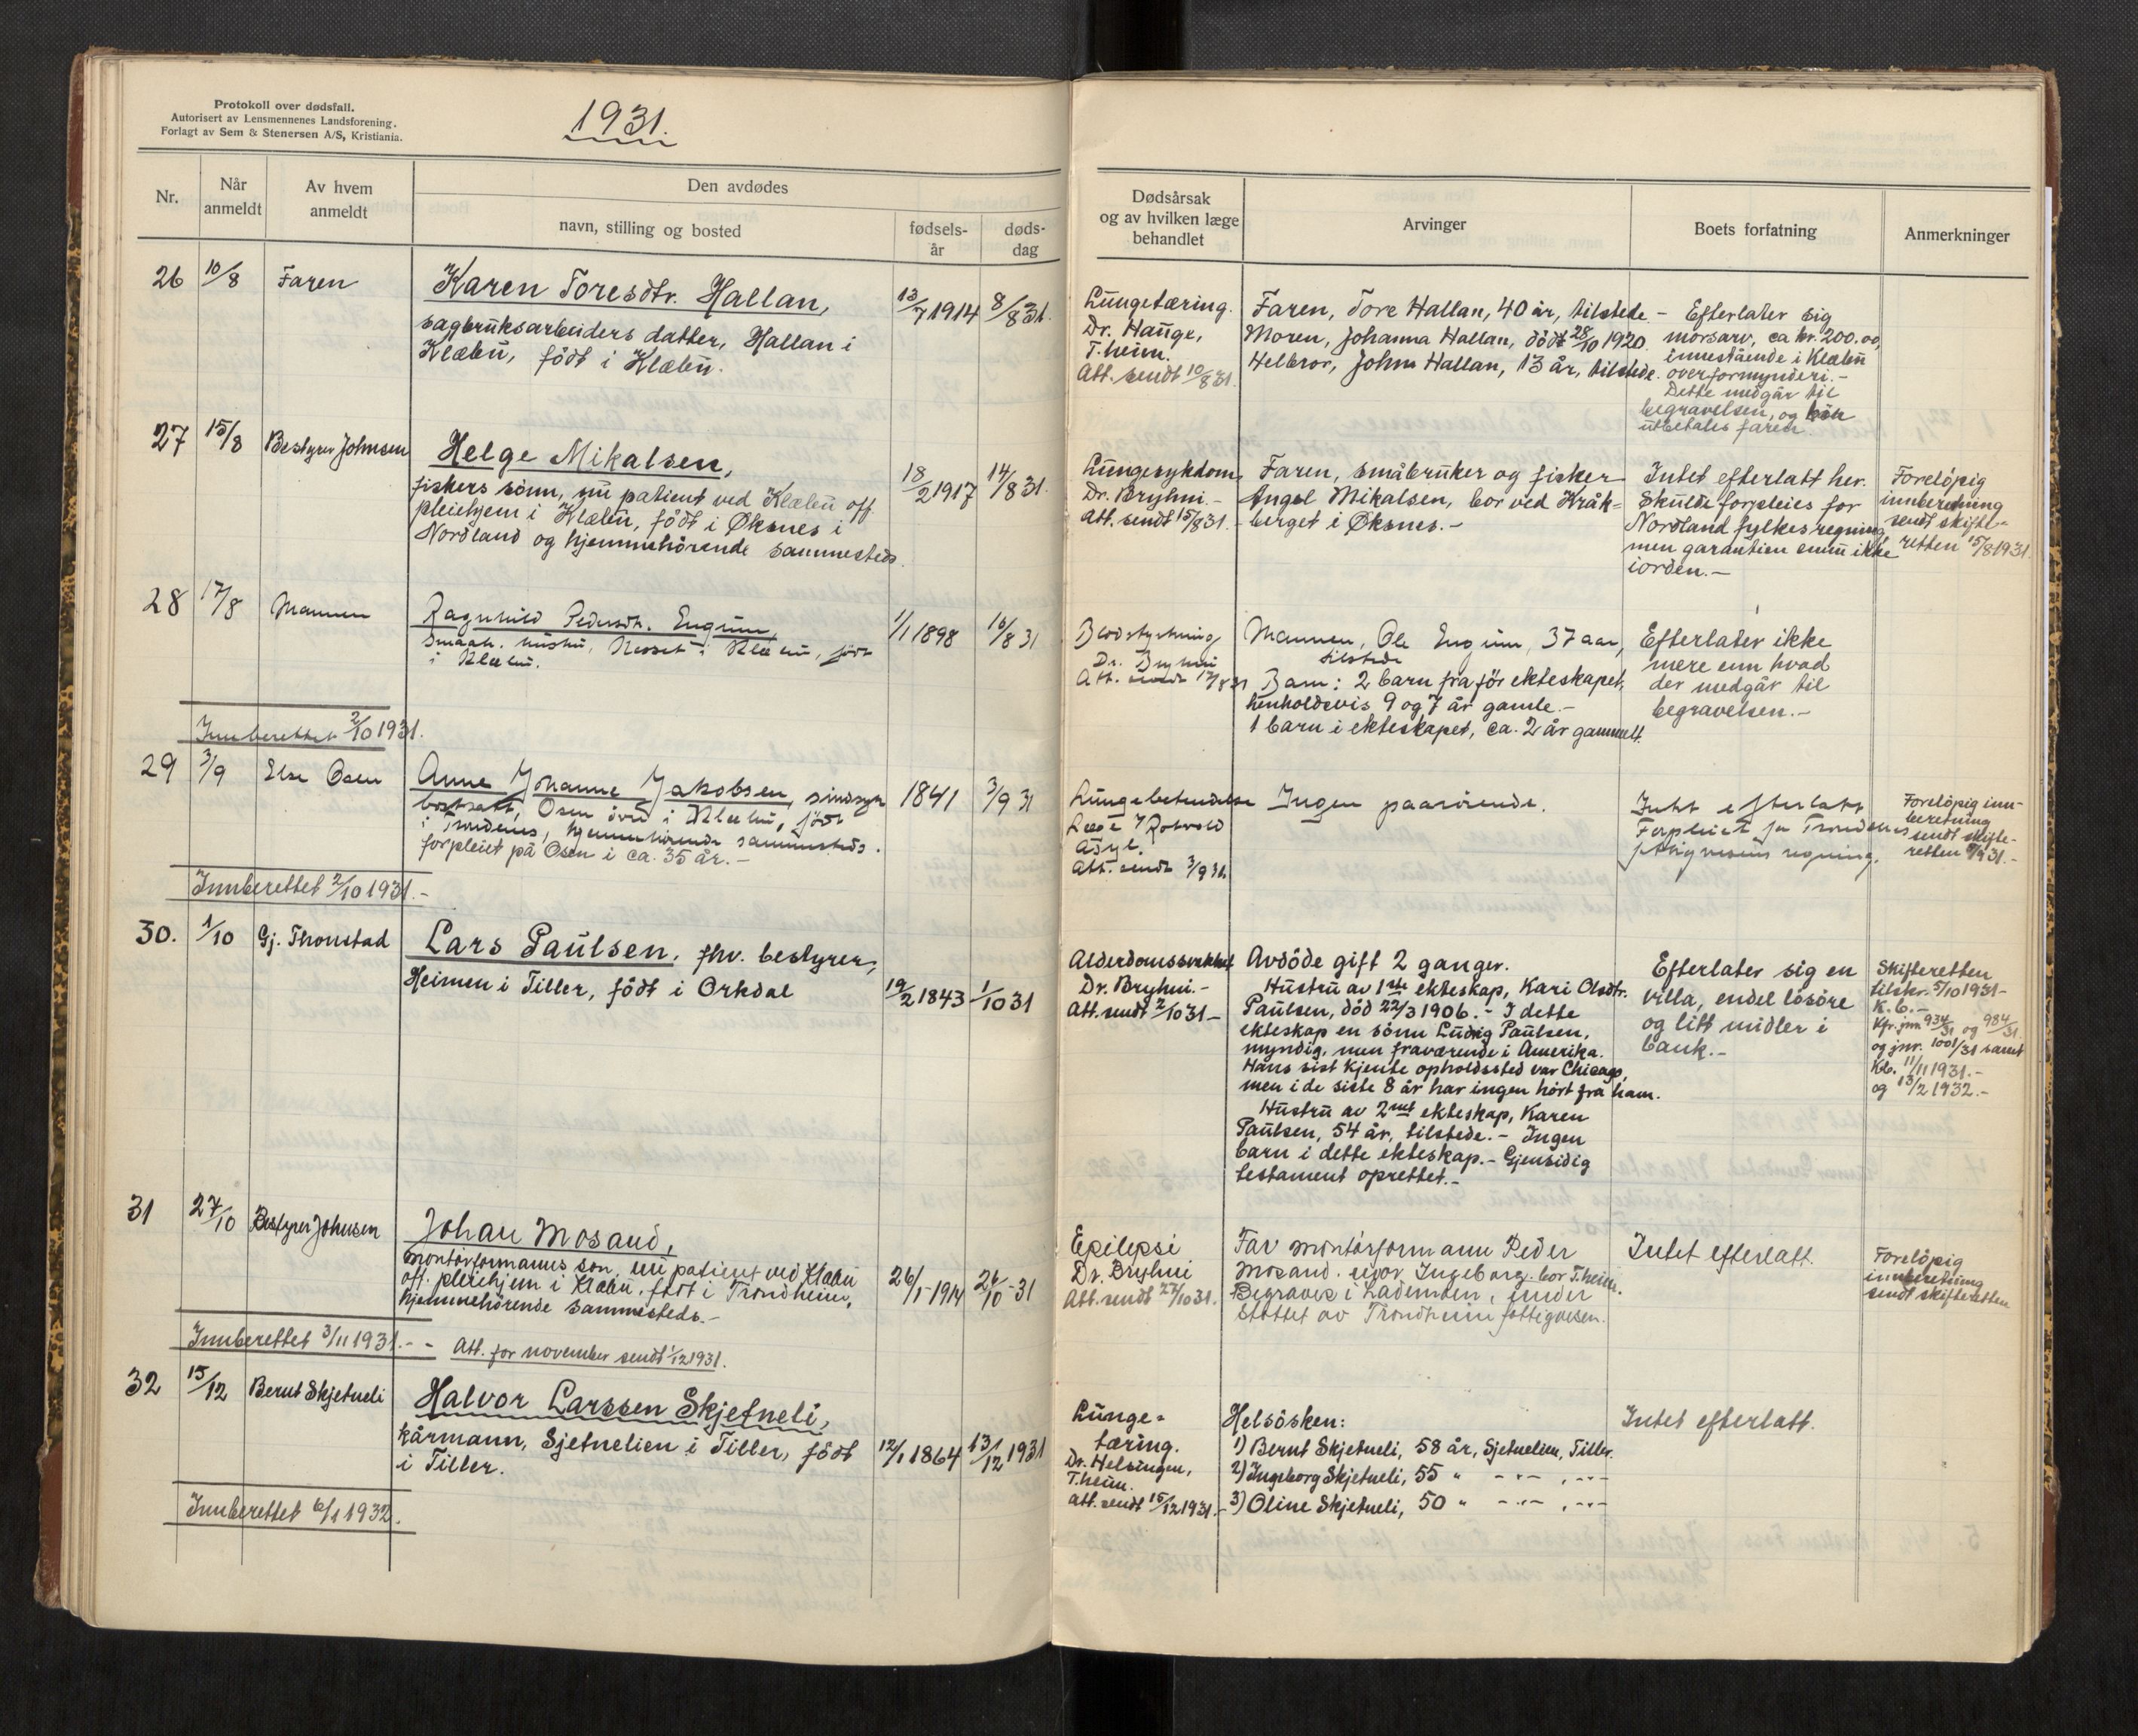 Protokoll over dødsfall.
Autorisert av Lensmennenes Landsforening.
Forlagt av Sem & Stenersen A/S, Kristiania.
1931.
Nr.
Når anmeldt
Av hvem anmeldt
Den avdødes
navn, stilling og bosted
fødsels-år
døds-dag
Dødsårsak
og av hvilken læge
behandlet
Arvinger
Boets forfatning
Anmerkninger
26 10/8 Faren
Karen Toresdtr. Hallan,
sagbruksarbeiders datter, Hallan i
Klæbu, födt i Klæbu.
13/7 1914 8/8 31.
Lungetæring.
Dr. Hauge,
T.heim.
Att. sendt 10/8 31.
Faren, Tore Hallan, 40 år, tilstede.
Moren, Johanna Hallan, död 28/10 1920.
Helbror, Johan Hallan, 13 år, tilstede.
- Efterlater sig
morsarv, ca kr. 200.00,
innestående i Klæbu
overformynderi.-
Dette medgår til
begravelsen, og bör
utbetales faren.
27 15/8 Bestyrer Johnsen
Helge Mikalsen,
fiskers sönn, nu patient ved Klæbu off.
pleiehjem i Klæbu, födt i Øksnes i
Nordland og hjemmehörende sammesteds.
18/2 1917 14/8 31.
Lungesykdom,
Dr. Bryhni.-
Att. sendt 15/8 31.-
Faren, småbruker og fisker
Angel Mikalsen, bor ved Kråk=
berget i Øksnes.-
Intet efterlatt her.
Skulde forpleies for
Nordland fylkes regning,
men garantien ennu ikke
iorden.-
Forelöpig
innberetning
sendt skifte-
retten 15/8 1931.
28 17/8 Mannen
Ragnhild Pedersdtr. Engum,
smaabr. hustru, Nesset i Klæbu, född
i Klæbu.
1/1 1898 16/8 31
Blodstyrtning
Dr. Bryhni
Att. sendt 17/8 31
Mannen, Ole Engum, 37 aar,
tilstede
Barn: 2 barn fra för ekteskapet,
henholdsvis 9 og 7 år gamle.-
1 barn i ekteskapet, ca. 2 år gammelt.
Efterlater ikke
mere enn hvad
der medgår til
begravelsen.-
Innberettet 2/10 1931.
29 3/9 Else Osen
Anne Johanne Jakobsen, sindssyk
bortsatt, Osen övre i Klæbu, född
i Trondenes, hjemmehörende sammesteds.
forpleiet på Osen i ca. 35 år.-
1841 3/9 31
Lungebetendelse
Læge v/ Rotvold
Asyl.
Att. sendt 3/9 31.
Ingen paarörende.
Intet efterlatt
Forpleiet for Trondenes
fattigvesens regning.
Forelöpig inn-
beretning
sendt skifte-
retten 3/9 31.-
Innberettet 2/10 1931.-
30. 1/10 Gj. Thonstad
Lars Paulsen, fhv. bestyrer,
Heimen i Tiller, födt i Orkdal
19/2 1843 1/10 31
Alderdomssvakhet
Dr. Bryhni.-
Att. sendt 2/10 31-
Avdöde gift 2 ganger.
Hustru av 1ste ekteskap, Kari Olsdtr.
Paulsen, död 22/3 1906.- I dette
ekteskap en sönn Ludvig Paulsen,
myndig, men fraværende i Amerika.
Hans sist kjente opholdssted var Chicago,
men i de siste 8 år har ingen hört fra ham.
Hustru av 2net ekteskap, Karen
Paulsen, 54 år, tilstede.- Ingen
barn i dette ekteskap.- Gjensidig
testament oprettet.-
Efterlater sig en
villa, endel lösöre
og litt midler i
bank.-
Skifteretten
tilskr. 5/10 1931-
K.b.-
Kfr. jnr. 934/31 og 984/31.
og jnr. 1001/31 samt
Kb. 11/11 1931.-
og 13/2 1932.-
31 27/10 Bestyrer Johnsen
Johan Mosand,
montörformanns son, nu patient ved Klæbu
off. pleiehjem i Klæbu, födt i Trondheim,
hjemmehörende sammesteds.-
26/1-1914 26/10-31
Epilepsi
Dr. Bryhni
Att. sendt 27/10 31.
Far montörformann Peder
Mosand. mor Ingeborg. bor T.heim.
Begraves i Lademoen, under
stöttet av Trondheim fattigvesen.
Intet efterlatt.
Forelöpig
innberetning
sendt skifteretten
Innberettet 3/11 1931.- - Att. for november sendt 1/12 1931.
32 15/12 Bernt Skjetneli
Halvor Larssen Skjetneli,
kårmann, Sjetnelien i Tiller, födt
i Tiller.
12/1 1864 13/12 1931
Lunge=
tæring.
Dr. Helsingen,
T.heim.
Att. sendt 15/12 1931.-
Helsösken:
1) Bernt Skjetneli, 58 år, Sjetnelien, Tiller.
2) Ingeborg Skjetneli, 55 " - " - , - " -
3) Oline Skjetneli, 50 " - " - , - " -
Intet efterlatt.
Innberettet 6/1 1932.